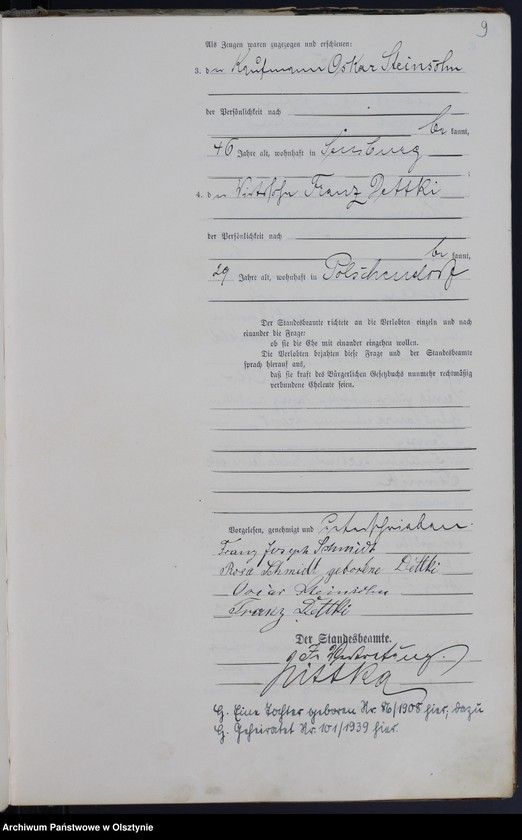 9
Als Zeugen waren zugezogen und erschienen:
3. der Kaufmann Oskar Steinsohn
der Persönlichkeit nach
be kannt,
46 Jahre alt, wohnhaft in Sensburg
;
4. der Wirtssohn Franz Dettki
der Persönlichkeit nach
be kannt,
29 Jahre alt, wohnhaft in Polschendorf
Der Standesbeamte richtete an die Verlobten einzeln und nach
einander die Frage:
ob sie die Ehe mit einander eingehen wollen.
Die Verlobten bejahten diese Frage und der Standesbeamte
sprach hierauf aus,
daß sie kraft des Bürgerlichen Gesetzbuchs nunmehr rechtmäßig
verbundene Eheleute seien.
Vorgelesen, genehmigt und unterschrieben.
Franz Joseph Schmidt
Rosa Schmidt geborene Dettki
Oscar Steinsohn
Franz Dettki
Der Standesbeamte.
In Vertretung.
G. Eine Tochter geboren Nr. 86/1908 hier, dazu
G. Geheiratet Nr. 101/1939 hier.
Archiwum Państwowe w Olsztynie